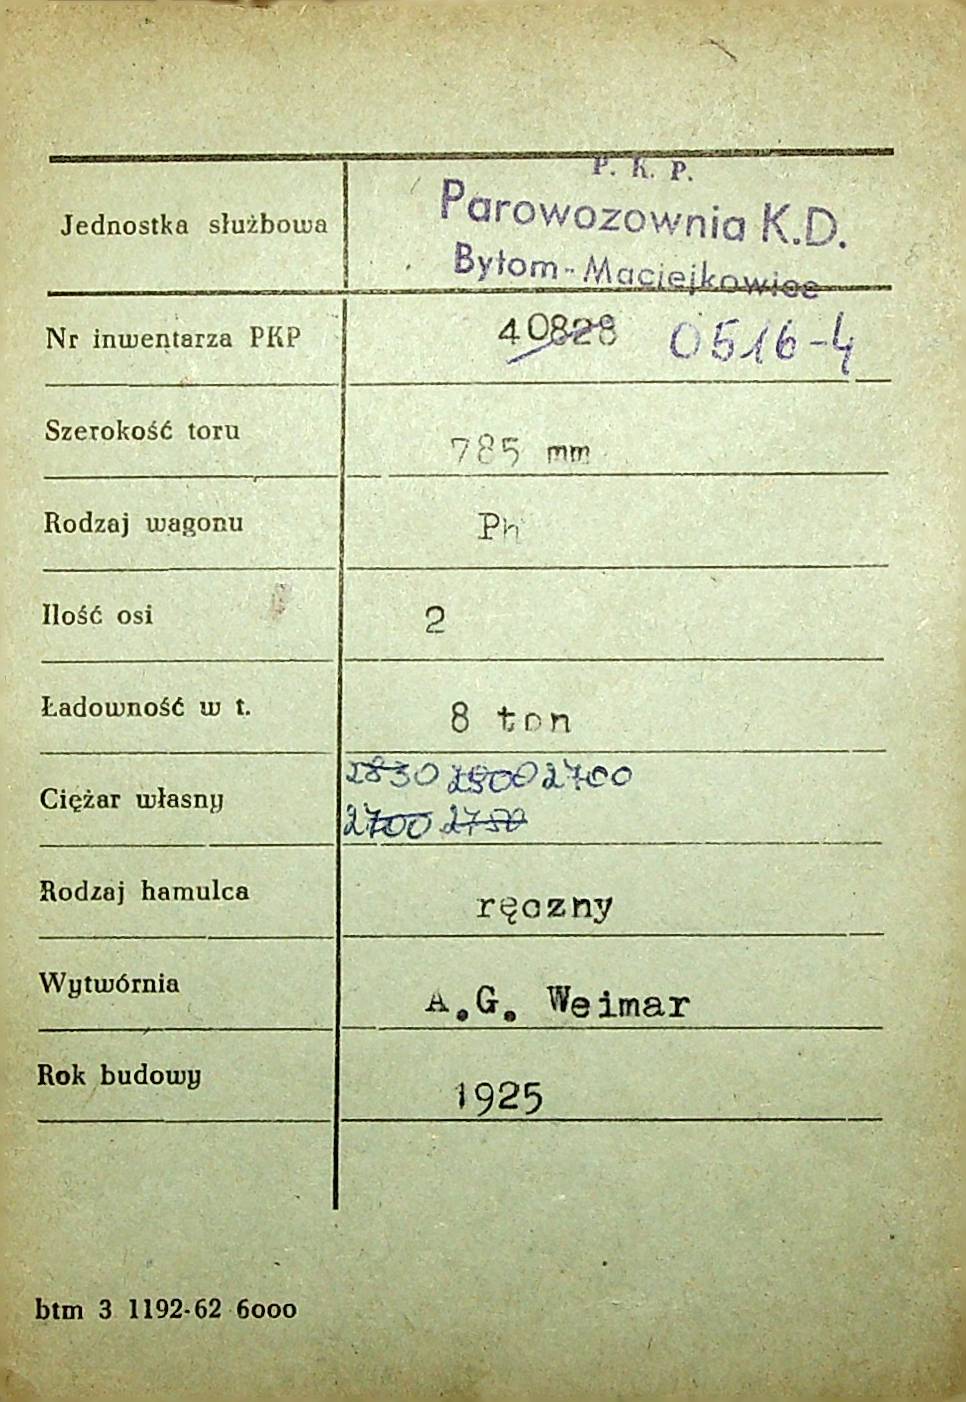 P. K. P.
Jednostka służbowa Parowozownia K.D.
Bytom-Maciejkowice
Nr inwentarza PKP 40828 0516-4
Szerokość toru 785 mm
Rodzaj wagonu Ph
Ilość osi 2
Ładowność w t. 8 ton
Ciężar własny 2830 2900 2700
2700 2750
Rodzaj hamulca ręczny
Wytwórnia A.G. Weimar
Rok budowy 1925
btm 3 1192-62 6000